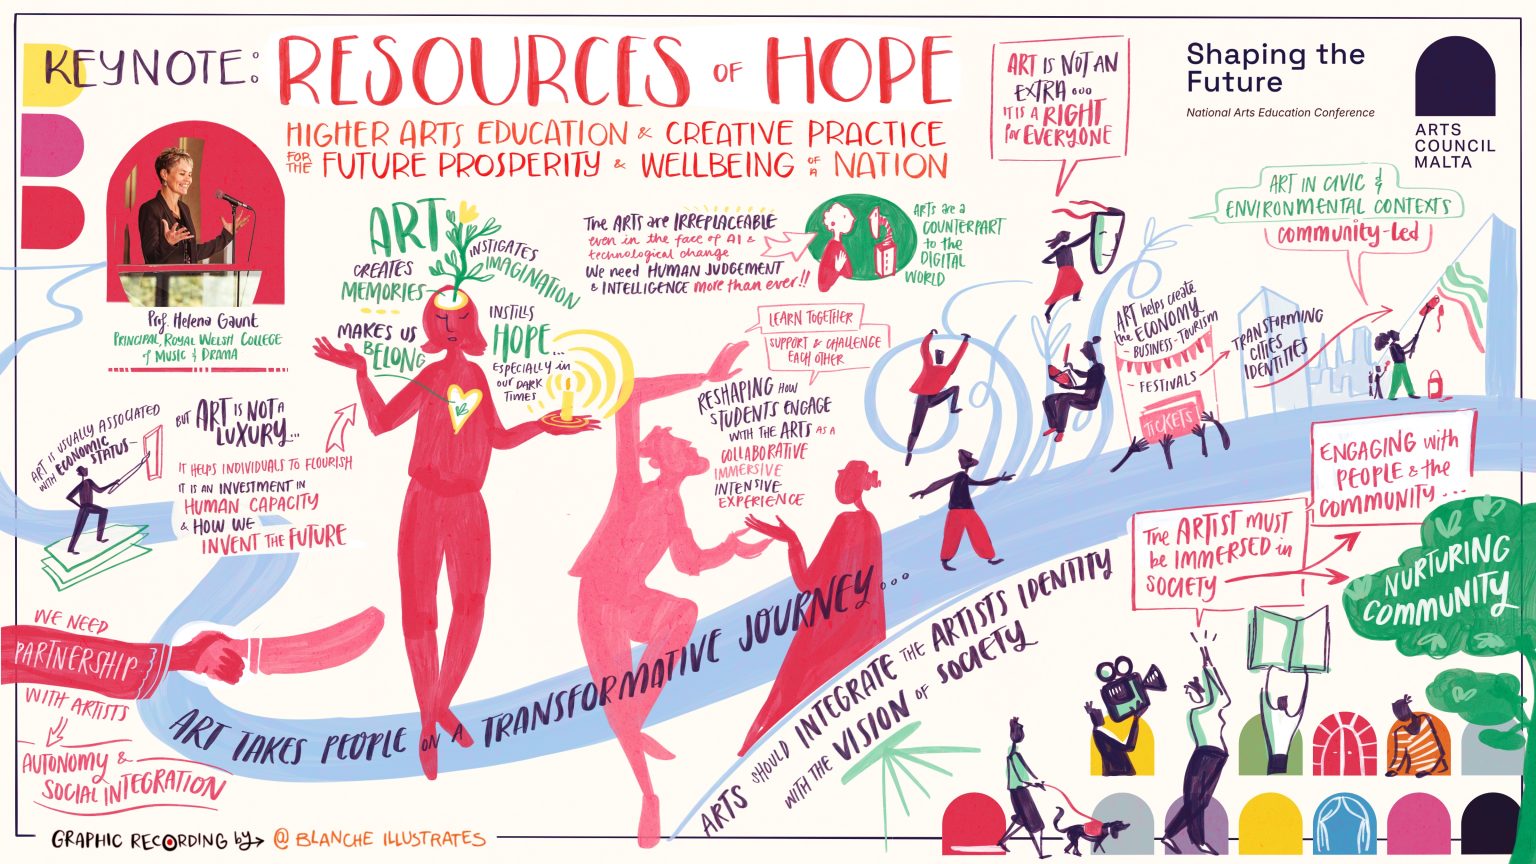 KEYNOTE:
RESOURCES OF HOPE
HIGHER ARTS EDUCATION & CREATIVE PRACTICE
FOR THE FUTURE PROSPERITY & WELLBEING OF A NATION
Prof. Helena Gaunt
PRINCIPAL, ROYAL WELSH COLLEGE
of MUSIC & DRAMA
ART IS NOT AN
EXTRA ...
IT IS A RIGHT
for EVERYONE
Shaping the
Future
National Arts Education Conference
ARTS
COUNCIL
MALTA
ART IS USUALLY ASSOCIATED
WITH ECONOMIC
STATUS-
BUT ART IS NOT A
LUXURY...
IT HELPS INDIVIDUALS TO FLOURISH
IT IS AN INVESTMENT IN
HUMAN CAPACITY
& HOW WE
INVENT THE FUTURE
ART
CREATES
MEMORIES
MAKES US
BELONG
INSTIGATES
IMAGINATION
INSTILLS
HOPE...
ESPECIALLY in
OUR DARK
TIMES
The ARTS are IRREPLACEABLE
even in the face of AI &
technological change
We need HUMAN JUDGEMENT
& INTELLIGENCE more than ever!!
ARTS are a
COUNTERPART
to the
DIGITAL
WORLD
LEARN TOGETHER
SUPPORT & CHALLENGE
EACH OTHER
RESHAPING HOW
STUDENTS ENGAGE
WITH THE ARTS AS A
COLLABORATIVE
IMMERSIVE
INTENSIVE
EXPERIENCE
ART helps create
the ECONOMY
- BUSINESS - TOURISM
- FESTIVALS
TICKETS
TRANSFORMING
CITIES
IDENTITIES
ART IN CIVIC &
ENVIRONMENTAL CONTEXTS
community-led
WE NEED
PARTNERSHIP
WITH ARTISTS
AUTONOMY &
SOCIAL INTEGRATION
ART TAKES PEOPLE ON A TRANSFORMATIVE JOURNEY...
ARTS SHOULD INTEGRATE THE ARTISTS IDENTITY
WITH THE VISION OF SOCIETY
The ARTIST MUST
be IMMERSED in
SOCIETY
ENGAGING with
PEOPLE & the
COMMUNITY ...
NURTURING
COMMUNITY
GRAPHIC RECORDING by @ BLANCHE ILLUSTRATES